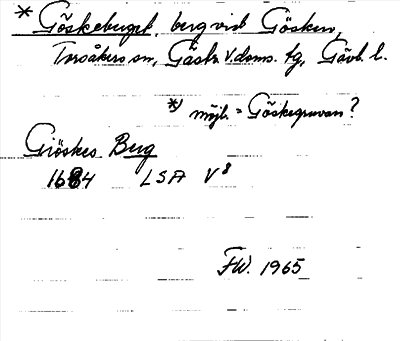 * Göskeberget, berg vid Gösken,
Torsåkers sn, Gästr. V. doms. tg, Gävl. l.
*) möjl. = Göskegruvan?
Giöskes Berg
1684 LSA V8
FW. 1965